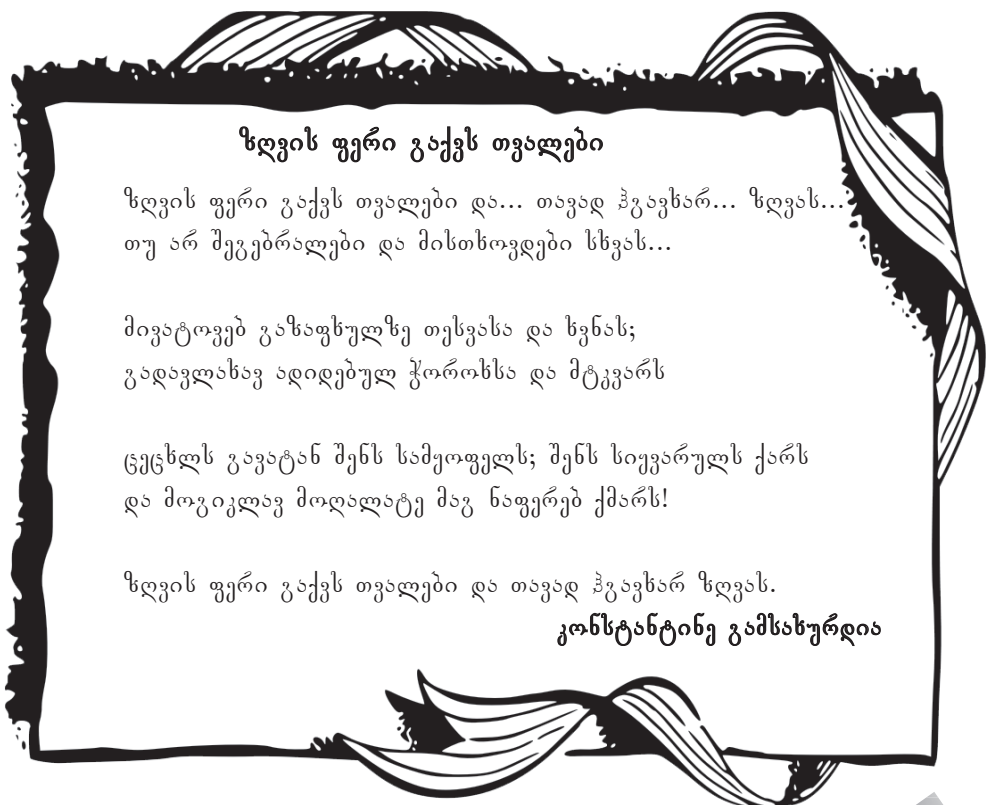 ზღვის ფერი გაქვს თვალები
ზღვის ფერი გაქვს თვალები და... თავად ჰგავხარ... ზღვას...
თუ არ შეგებრალები და მისთხოვდები სხვას...
მივატოვებ გაზაფხულზე თესვასა და ხვნას;
გადავლახავ ადიდებულ ჭოროხსა და მტკვარს
ცეცხლს გავატან შენს სამყოფელს; შენს სიყვარულს ქარს
და მოგიკლავ მოღალატე მაგ ნაფერებ ქმარს!
ზღვის ფერი გაქვს თვალები და თავად ჰგავხარ ზღვას.
კონსტანტინე გამსახურდია